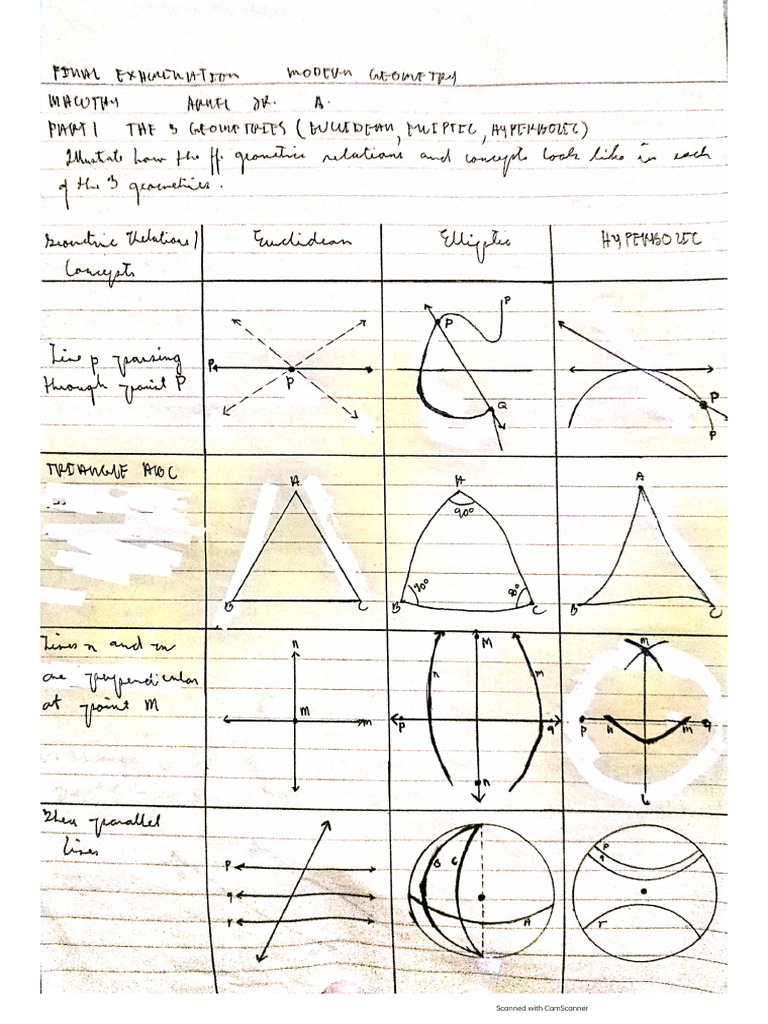 FINAL EXAMINATION MODERN GEOMETRY
MACUTAY ARNEL JR. A.
PART I THE 3 GEOMETRIES (EUCLIDEAN, ELLIPTIC, HYPERBOLIC)
Illustrate how the ff. geometric relations and concepts look like in each
of the 3 geometries.
Geometric Relations/ Euclidean Elliptic HYPERBOLIC
Concepts
Line p passing
through point P
P P
P P Q
P P
TRIANGLE ABC
A B C
A 90° B 90° C 90°
A B C
Lines n and m
are perpendicular
at point M
n M m
M n m p q n
m p n m q L
Three parallel
lines
p
q
r
B C A
p
q
r
Scanned with CamScanner